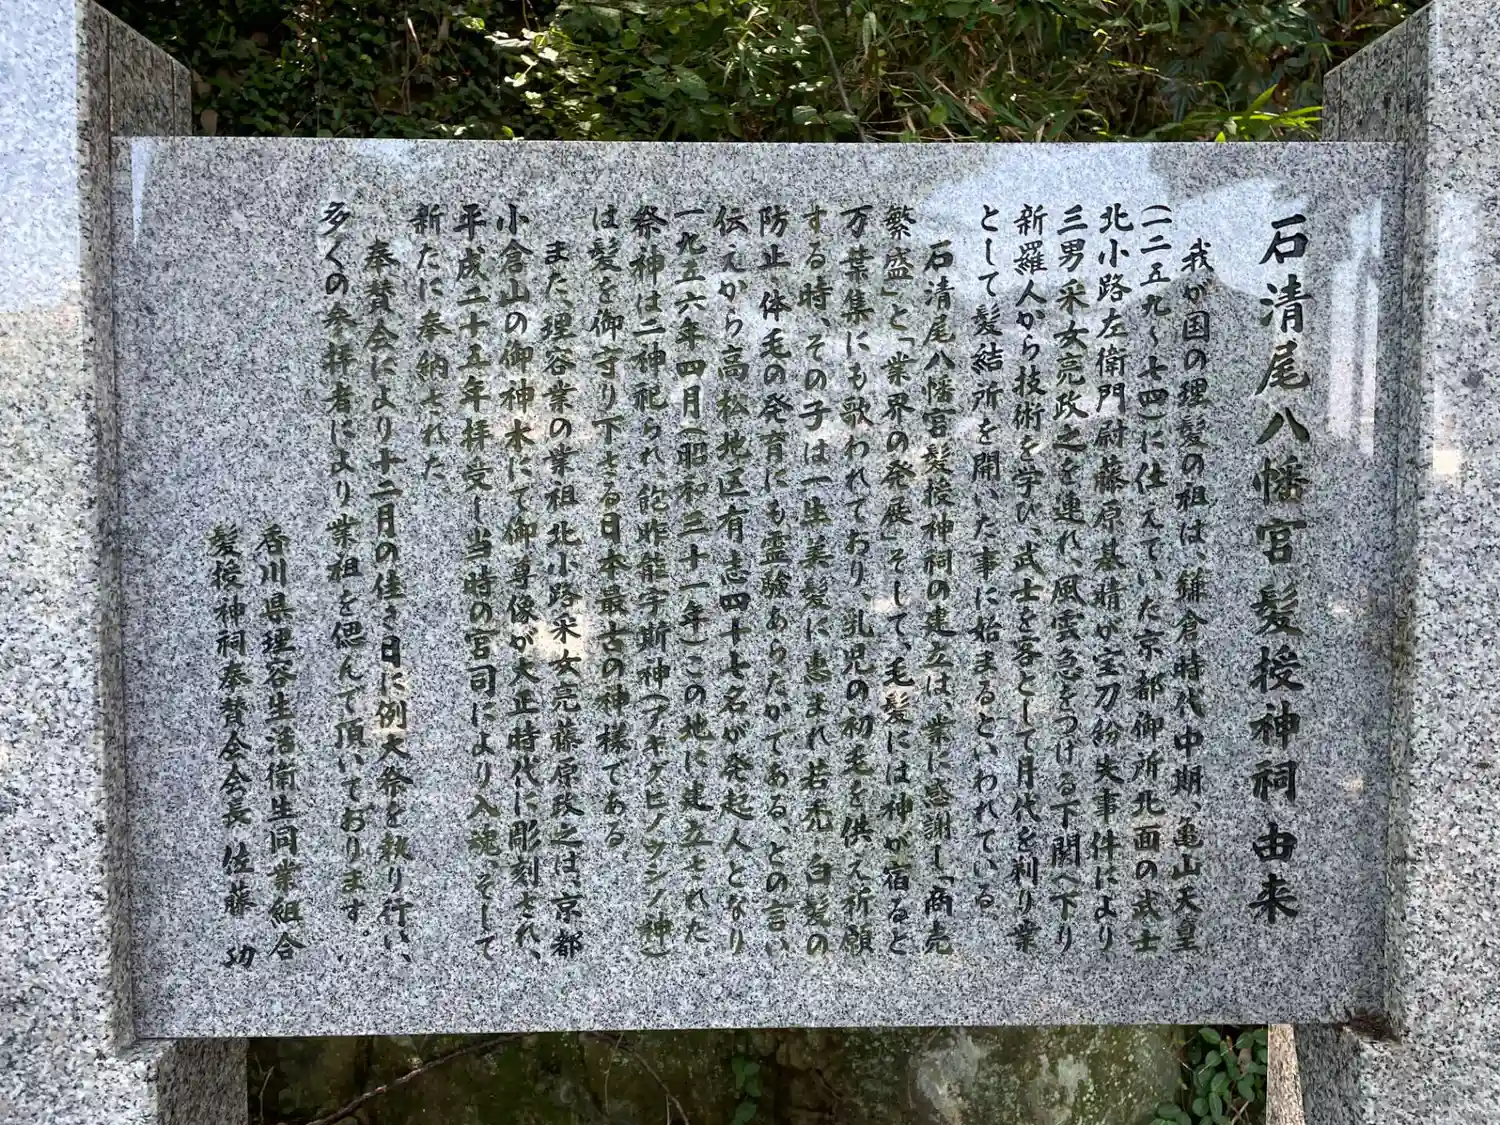 石清尾八幡宮髪授神祠由来
我が国の理髪の祖は、鎌倉時代中期、亀山天皇
(一二五九〜七四)に仕えていた京都御所北面の武士
北小路左衛門尉藤原基晴が宝刀紛失事件により
三男采女亮政之を連れ、風雲急をつげる下関へ下り
新羅人から技術を学び、武士を客として月代を剃り業
として髪結所を開いた事に始まるといわれている
石清尾八幡宮髪授神祠の建立は、業に感謝し「商売
繁盛」と「業界の発展」そして、毛髪には神が宿ると
万葉集にも歌われており、乳児の初毛を供え祈願
する時、その子は一生美髪に恵まれ若禿、白髪の
防止、体毛の発育にも霊験あらたかである、との言い
伝えから高松地区有志四十七名が発起人となり
一九五六年四月(昭和三十一年)この地に建立された。
祭神は二神祀られ、飽咋能宇斯神(アキグヒノウシノ神)
は髪を御守り下さる日本最古の神様である。
また、理容業の業祖北小路采女亮藤原政之は、京都
小倉山の御神木にて御尊像が大正時代に彫刻され、
平成二十五年拝受し当時の宮司により入魂、そして
新たに奉納された
奉賛会により十二月の佳き日に例大祭を執り行い、
多くの参拝者により業祖を偲んで頂いております。
香川県理容生活衛生同業組合
髪授神祠奉賛会会長 佐藤 功